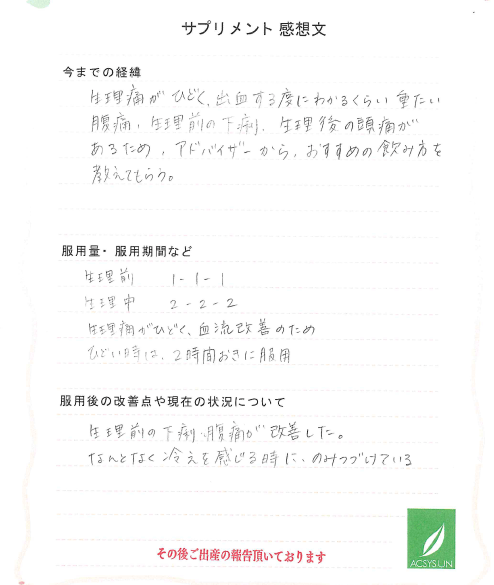 サプリメント 感想文
今までの経緯
生理痛がひどく、出血する度にわかるくらい重たい
腹痛、生理前の下痢、生理後の頭痛が
あるため、アドバイザーから、おすすめの飲み方を
教えてもらう。
服用量・服用期間など
生理前 1-1-1
生理中 2-2-2
生理痛がひどく、血流改善のため
ひどい時は、2時間おきに服用
服用後の改善点や現在の状況について
生理前の下痢、腹痛が改善した。
なんとなく冷えを感じる時に、のみつづけている
その後ご出産の報告頂いております
ACSYS UN